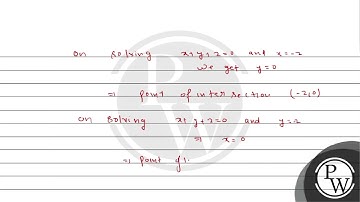 On solving x+y+2=0 and x=-2
we get y=0
⇒ point of intersection (-2,0)
On solving x+y+2=0 and y=-2
⇒ x=0
⇒ point of i
PW
PW